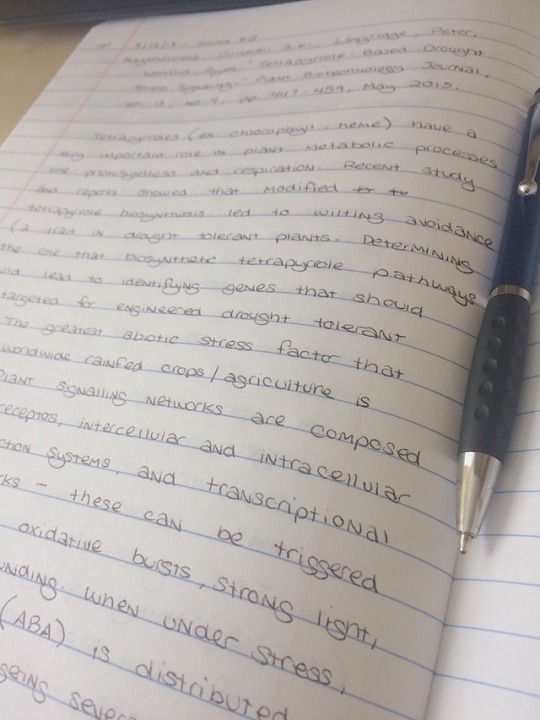 Source #2
Peter,
"Tetrapyrrole-Based Drought
Stress Signaling" Plant Biotechnology Journal,
Vol 13, No. 4, pp. 447-459, May 2015.
Tetrapyrroles (ex chlorophyll, heme) have a
very important role in plant metabolic processes
like photosynthesis and respiration. Recent study
and reports showed that modified
tetrapyrrole biosynthesis led to wilting avoidance
(a trait in drought tolerant plants. Determining
the role that biosynthetic tetrapyrrole pathways
lead to identifying genes that should
targeted for engineered drought tolerant
The greatest abiotic stress factor that
worldwide rainfed crops/agriculture is
Plant signalling networks are composed
receptors, intercellular and intracellular
systems, and transcriptional
- these can be triggered
oxidative bursts, strong light,
when under stress,
(ABA) is distributed